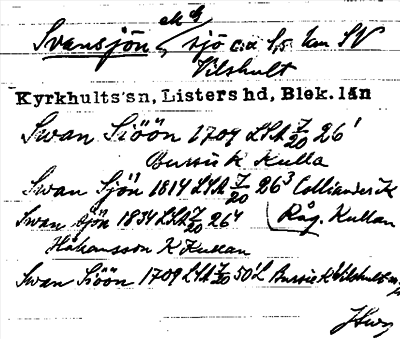 Svansjön, sjö c:a 1,5 km SV
Vilshult
Kyrkhults sn, Listers hd, Blek. län
Swan Siöön 1709 LSA 7/20 26¹
Bursie K Kulla
Swan Sjön 1814 LSA 7/20 26³ Colliander K
Råg. Kullan
Swan sjön 1834 LSA 7/20 26⁴
Håkansson K Kullan
Swan Siöön 1709 LSA 7/20 50¹ Bursie K Vilshult